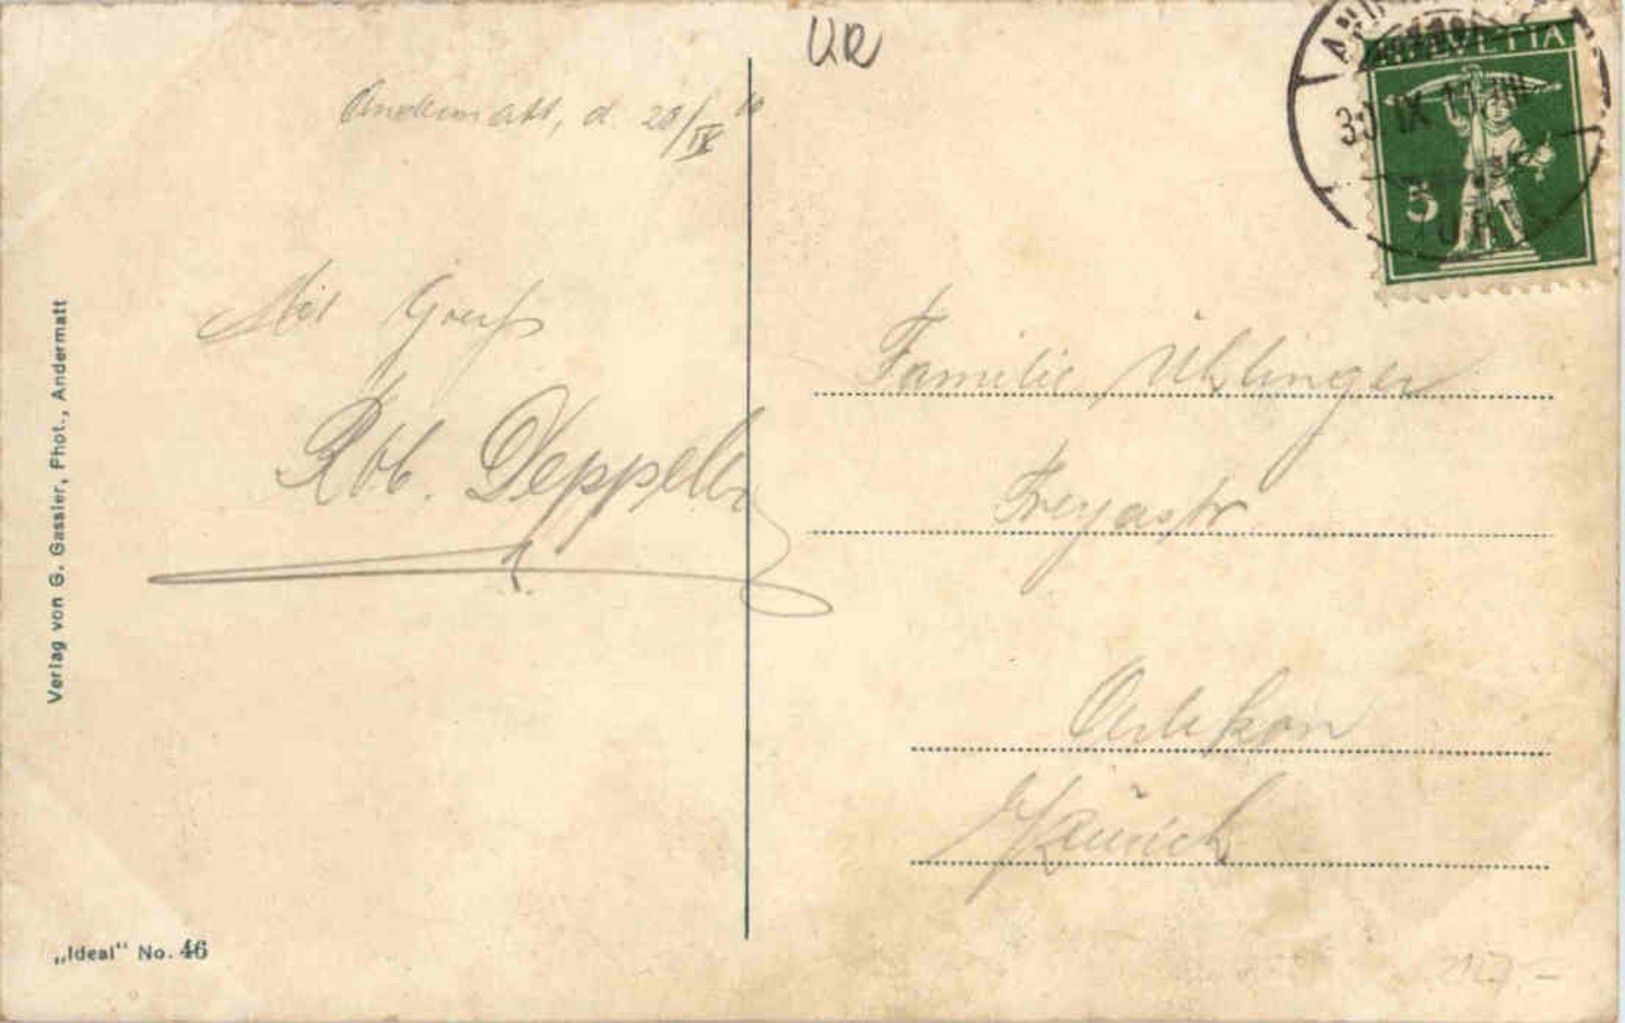 UR
Andermatt, d. 28/IX 10
Mit Gruss
Rob. Deppeler
Familie Uhlinger
Freyastr.
Oerlikon
Zürich
HELVETIA
5
URI
Verlag von G. Gassler, Phot., Andermatt
„Ideal“ No. 46